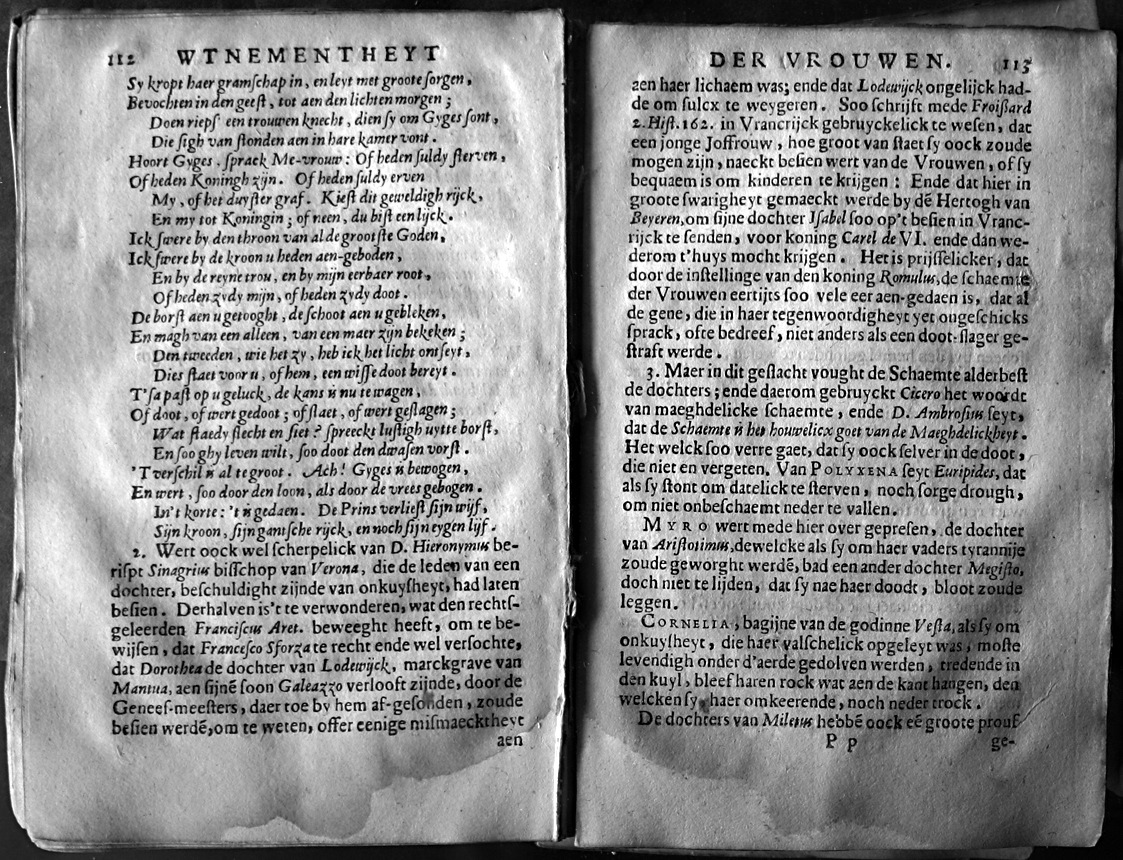 112 WTNEMENTHEYT
Sy kropt haer gramſchap in, en leyt met groote ſorgen,
Bevochten in den geeſt, tot aen den lichten morgen;
Doen riepſ' een trouwen knecht, dien ſy om Gyges ſont,
Die ſigh van ſtonden aen in hare kamer vont.
Hoort Gyges, ſprack Me-vrouw: Of heden ſuldy ſterven,
Of heden Koningh zijn. Of heden ſuldy erven
My, of het duyſter graf. Kieſt dit geweldigh rijck,
En my tot Koningin; of neen, du biſt een lijck.
Ick ſwere by den throon van al de grootſte Goden,
Ick ſwere by de kroon u heden aen-geboden,
En by de reyne trou, en by mijn eerbaer root,
Of heden zydy mijn, of heden zydy doot.
De borſt aen u getooght, de ſchoot aen u gebleken,
En magh van een alleen, van een maer zijn bekeken;
Den tweeden, wie het zy, heb ick het licht ontſeyt,
Dies ſtaet voor u, of hem, een wiſſe doot bereyt.
T'ſa paſt op u geluck, de kans is nu te wagen,
Of doot, of wert gedoot; of ſlaet, of wert geſlagen;
Wat ſtaedy ſlecht en ſiet? ſpreeckt luſtigh uytte borſt,
En ſoo ghy leven wilt, ſoo doot den dwaſen vorſt.
'T verſchil is al te groot. Ach! Gyges is bewogen,
En wert, ſoo door den loon, als door de vrees gebogen.
In't korte: 't is gedaen. De Prins verlieſt ſijn wijf,
Sijn kroon, ſijn gantſche rijck, en noch ſijn eygen lijf.
2. Wert oock wel ſcherpelick van D. Hieronymus be-
riſpt Sinagrius biſſchop van Verona, die de leden van een
dochter, beſchuldight zijnde van onkuyſheyt, had laten
beſien. Derhalven is't te verwonderen, wat den rechtſ-
geleerden Franciſcus Aret. beweeght heeft, om te be-
wijſen, dat Franceſco Sforza te recht ende wel verſochte,
dat Dorothea de dochter van Lodewijck, marckgrave van
Mantua, aen ſijnē ſoon Galeazzo verlooft zijnde, door de
Geneeſ-meeſters, daer toe by hem af-geſonden, zoude
beſien werdē, om te weten, offer eenige miſmaecktheyt
aen
DER VROUWEN. 113
aen haer lichaem was; ende dat Lodewijck ongelijck had-
de om ſulcx te weygeren. Soo ſchrijft mede Froiſſard
2. Hiſt. 162. in Vrancrijck gebruyckelick te weſen, dat
een jonge Joffrouw, hoe groot van ſtaet ſy oock zoude
mogen zijn, naeckt beſien wert van de Vrouwen, of ſy
bequaem is om kinderen te krijgen: Ende dat hier in
groote ſwarigheyt gemaeckt werde by dē Hertogh van
Beyeren, om ſijne dochter Iſabel ſoo op't beſien in Vranc-
rijck te ſenden, voor koning Carel de VI. ende dan we-
derom t'huys mocht krijgen. Het is prijſſelicker, dat
door de inſtellinge van den koning Romulus, de ſchaemte
der Vrouwen eertijts ſoo vele eer aen-gedaen is, dat al
de gene, die in haer tegenwoordigheyt yet ongeſchicks
ſprack, ofte bedreef, niet anders als een doot-ſlager ge-
ſtraft werde.
3. Maer in dit geſlacht vought de Schaemte alderbeſt
de dochters; ende daerom gebruyckt Cicero het woordt
van maeghdelicke ſchaemte, ende D. Ambroſius ſeyt,
dat de Schaemte is het houwelicx goet van de Maeghdelickheyt.
Het welck ſoo verre gaet, dat ſy oock ſelver in de doot,
die niet en vergeten. Van POLYXENA ſeyt Euripides, dat
als ſy ſtont om datelick te ſterven, noch ſorge drough,
om niet onbeſchaemt neder te vallen.
MYRO wert mede hier over gepreſen, de dochter
van Ariſtotimus, dewelcke als ſy om haer vaders tyrannije
zoude geworght werdē, bad een ander dochter Megiſto,
doch niet te lijden, dat ſy nae haer doodt, bloot zoude
leggen.
CORNELIA, bagijne van de godinne Veſta, als ſy om
onkuyſheyt, die haer valſchelick opgeleyt was, moſte
levendigh onder d'aerde gedolven werden, tredende in
den kuyl, bleef haren rock wat aen de kant hangen, den
welcken ſy, haer omkeerende, noch neder trock.
De dochters van Miletus hebbē oock eē groote prouf
P p ge-